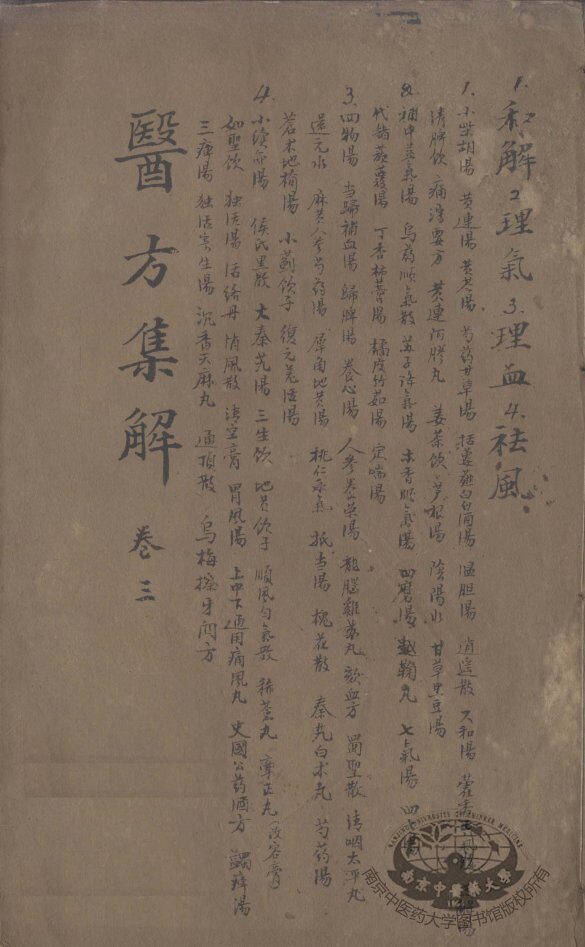 1. 和解 2. 理氣 3. 理血 4. 祛風
1. 小柴胡湯 黄連湯 黄芩湯 芍药甘草湯 括蔞薤白白酒湯 温胆湯 逍遥散 六和湯 藿香正
清脾飲 痛瀉要方 黄連阿膠丸 姜茶饮 芦根湯 陰陽水 甘草黑豆湯
2. 補中益氣湯 烏药順氣散 苏子降氣湯 木香順氣湯 四磨湯 越鞠丸 七氣湯 四七湯
代赭旋覆湯 丁香柿蒂湯 橘皮竹茹湯 定喘湯
3. 四物湯 当歸補血湯 歸脾湯 養心湯 人参养荣湯 龍腦雞苏丸 欬血方 獨聖散 清咽太平丸
還元水 麻黄人参芍药湯 犀角地黄湯 桃仁承氣 抵当湯 槐花散 秦艽白术丸 芍药湯
蒼术地榆湯 小薊饮子 復元羌活湯
4. 小續命湯 侯氏黑散 大秦艽湯 三生饮 地黄饮子 順風匀氣散 豨薟丸 牽正丸(改容膏)
如聖饮 独活湯 活絡丹 消風散 清空膏 胃風湯 上中下通用痛風丸 史國公药酒方 蠲痺湯
三痺湯 独活寄生湯 沉香天麻丸 通頂散 烏梅擦牙関方
醫方集解 卷三
南京中醫藥大學
NANJING UNIVERSITY OF CHINESE MEDICINE
南京中医药大学图书馆版权所有